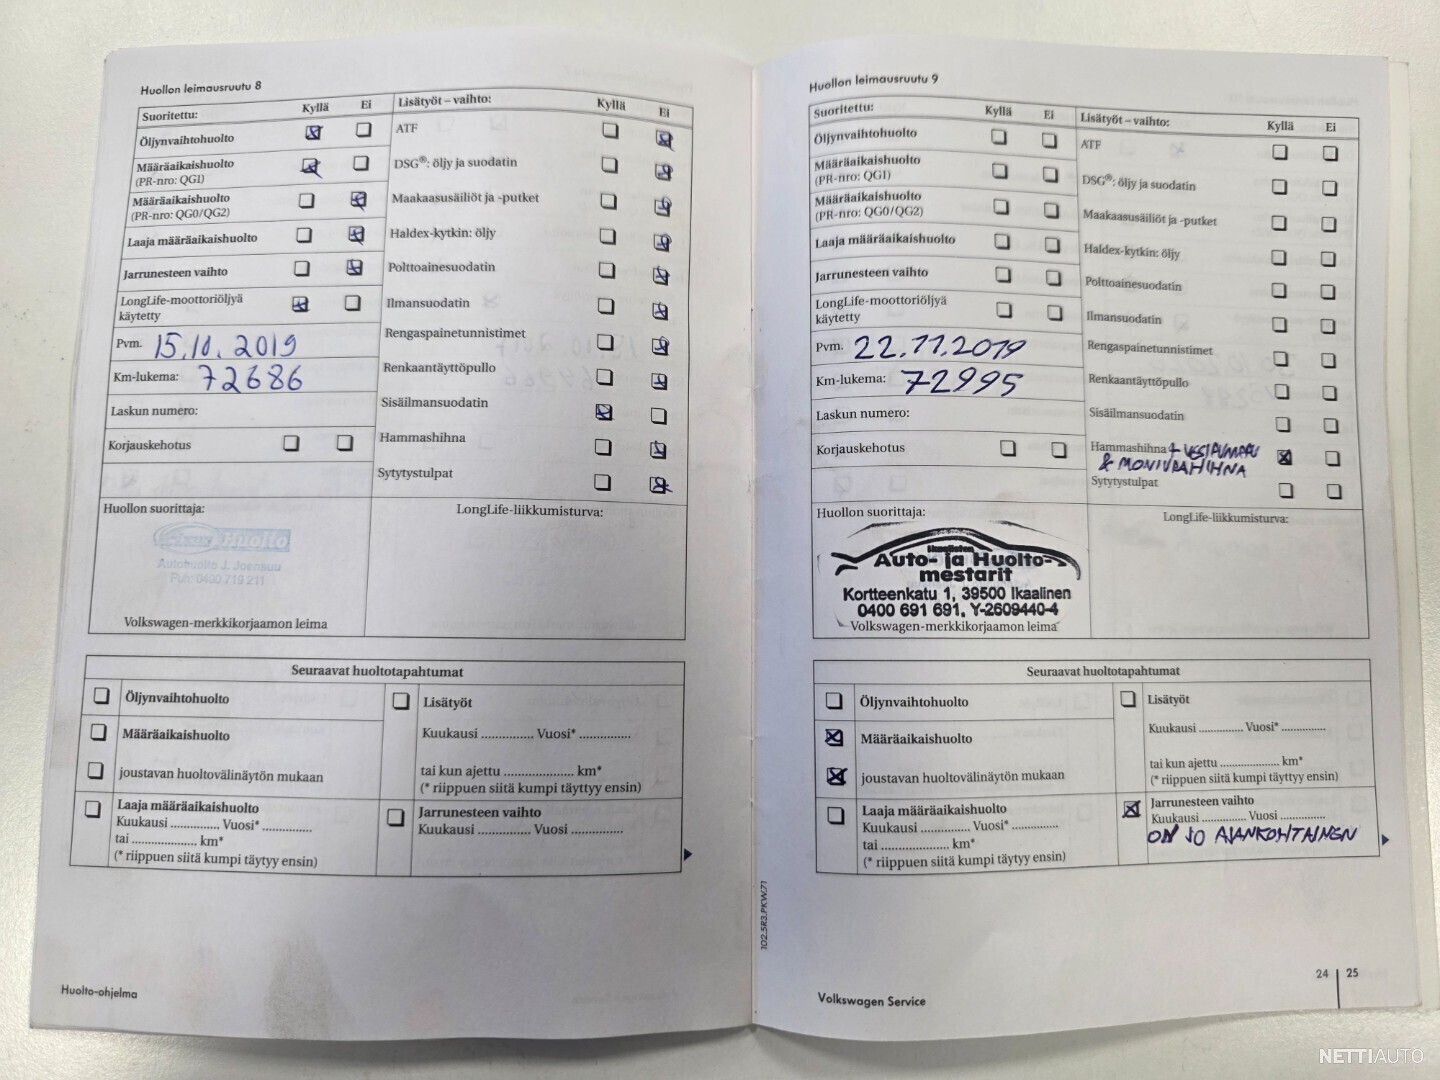 Huollon leimausruutu 8
Suoritettu: Kyllä Ei
Öljynvaihtohuolto
Määräaikaishuolto
(PR-nro: QG1)
Määräaikaishuolto
(PR-nro: QG0/QG2)
Laaja määräaikaishuolto
Jarrunesteen vaihto
LongLife-moottoriöljyä
käytetty
Pvm. 15.10.2019
Km-lukema: 72686
Laskun numero:
Korjauskehotus
Lisätyöt – vaihto: Kyllä Ei
ATF
DSG®: öljy ja suodatin
Maakaasusäiliöt ja -putket
Haldex-kytkin: öljy
Polttoainesuodatin
Ilmansuodatin
Rengaspainetunnistimet
Renkaantäyttöpullo
Sisäilmansuodatin
Hammashihna
Sytytystulpat
Huollon suorittaja:
Huolto
Autohuolto J. Joensuu
Puh. 0400 719 211
Volkswagen-merkkikorjaamon leima
LongLife-liikkumisturva:
Seuraavat huoltotapahtumat
Öljynvaihtohuolto
Määräaikaishuolto
joustavan huoltovälinäytön mukaan
Laaja määräaikaishuolto
Kuukausi .............. Vuosi* ..............
tai ................... km*
(* riippuen siitä kumpi täytyy ensin)
Lisätyöt
Kuukausi .............. Vuosi* ..............
tai kun ajettu ................... km*
(* riippuen siitä kumpi täyttyy ensin)
Jarrunesteen vaihto
Kuukausi .............. Vuosi ..............
Huolto-ohjelma
Huollon leimausruutu 9
Suoritettu: Kyllä Ei
Öljynvaihtohuolto
Määräaikaishuolto
(PR-nro: QG1)
Määräaikaishuolto
(PR-nro: QG0/QG2)
Laaja määräaikaishuolto
Jarrunesteen vaihto
LongLife-moottoriöljyä
käytetty
Pvm. 22.11.2019
Km-lukema: 72995
Laskun numero:
Korjauskehotus
Lisätyöt – vaihto: Kyllä Ei
ATF
DSG®: öljy ja suodatin
Maakaasusäiliöt ja -putket
Haldex-kytkin: öljy
Polttoainesuodatin
Ilmansuodatin
Rengaspainetunnistimet
Renkaantäyttöpullo
Sisäilmansuodatin
Hammashihna + VESIPUMPPU
& MONIURAHIHNA
Sytytystulpat
Huollon suorittaja:
Ikaalisten
Auto- ja Huolto-
mestarit
Kortteenkatu 1, 39500 Ikaalinen
0400 691 691, Y-2609440-4
Volkswagen-merkkikorjaamon leima
LongLife-liikkumisturva:
Seuraavat huoltotapahtumat
Öljynvaihtohuolto
Määräaikaishuolto
joustavan huoltovälinäytön mukaan
Laaja määräaikaishuolto
Kuukausi .............. Vuosi* ..............
tai ................... km*
(* riippuen siitä kumpi täytyy ensin)
Lisätyöt
Kuukausi .............. Vuosi* ..............
tai kun ajettu ................... km*
(* riippuen siitä kumpi täyttyy ensin)
Jarrunesteen vaihto
Kuukausi .............. Vuosi ..............
ON JO AJANKOHTAINEN
102.5R3.PKW.71
Volkswagen Service
24 25
NETTIAUTO